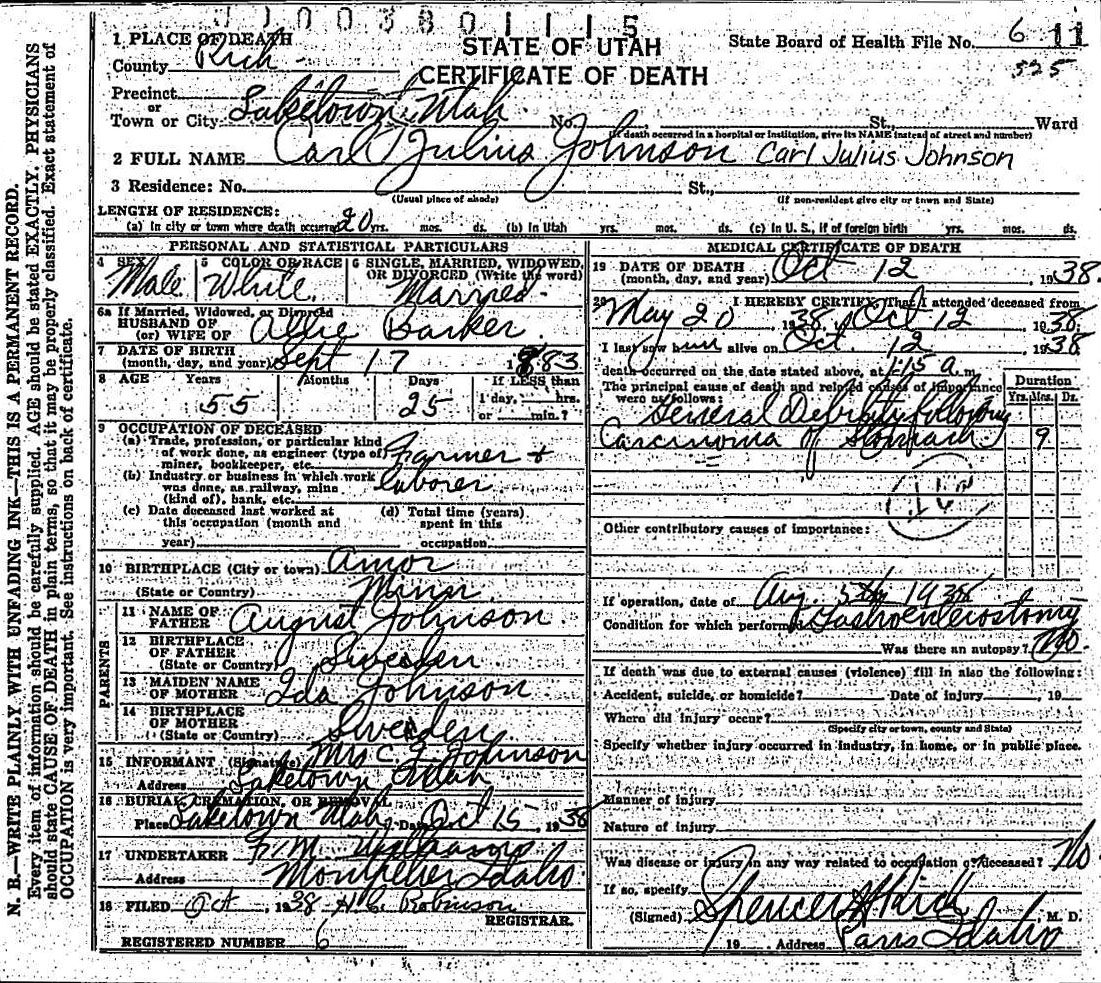 U 1 0 0 3 8 0 1 1 1 5
N. B.—WRITE PLAINLY WITH UNFADING INK—THIS IS A PERMANENT RECORD.
Every item of information should be carefully supplied. AGE should be stated EXACTLY. PHYSICIANS
should state CAUSE OF DEATH in plain terms, so that it may be properly classified. Exact statement of
OCCUPATION is very important. See instructions on back of certificate.
STATE OF UTAH
CERTIFICATE OF DEATH
State Board of Health File No. 6 11
525
1 PLACE OF DEATH
County Rich
Precinct
or
Town or City Laketown, Utah No. St., Ward
(If death occurred in a hospital or institution, give its NAME instead of street and number)
2 FULL NAME Carl Julius Johnson Carl Julius Johnson
3 Residence: No. St.,
(Usual place of abode) (If non-resident give city or town and State)
LENGTH OF RESIDENCE:
(a) In city or town where death occurred 20 yrs. mos. ds. (b) In Utah yrs. mos. ds. (c) In U. S., if of foreign birth yrs. mos. ds.
PERSONAL AND STATISTICAL PARTICULARS
4 SEX Male
5 COLOR OR RACE White
6 SINGLE, MARRIED, WIDOWED,
OR DIVORCED (Write the word)
Married
6a If Married, Widowed, or Divorced
HUSBAND OF
(or) WIFE OF Allie Barker
7 DATE OF BIRTH
(month, day, and year) Sept 17 1883
8 AGE Years Months Days If LESS than
55 25 1 day, hrs.
or min.?
9 OCCUPATION OF DECEASED
(a) Trade, profession, or particular kind
of work done, as engineer (type of) Farmer +
miner, bookkeeper, etc.
(b) Industry or business in which work laborer
was done, as railway, mine
(kind of), bank, etc.
(c) Date deceased last worked at (d) Total time (years)
this occupation (month and spent in this
year) occupation
10 BIRTHPLACE (City or town) Amor
(State or Country) Minn.
PARENTS
11 NAME OF
FATHER August Johnson
12 BIRTHPLACE
OF FATHER
(State or Country) Sweden
13 MAIDEN NAME
OF MOTHER Ida Johnson
14 BIRTHPLACE
OF MOTHER
(State or Country) Sweden
15 INFORMANT (Signature) Mrs C. J. Johnson
Address Laketown Utah
16 BURIAL, CREMATION, OR REMOVAL
Place Laketown Utah Date Oct 15, 1938
17 UNDERTAKER F. M. Williams
Address Montpelier Idaho
18 FILED Oct, 1938 H. C. Robinson
REGISTRAR.
REGISTERED NUMBER 6
MEDICAL CERTIFICATE OF DEATH
19 DATE OF DEATH
(month, day, and year) Oct 12 1938.
20 I HEREBY CERTIFY, That I attended deceased from
May 20, 1938, Oct 12 1938.
I last saw him alive on Oct 12, 1938
death occurred on the date stated above, at 1:15 a. m.
The principal cause of death and related causes of importance
were as follows: Duration
Yrs. Mos. Ds.
General Debility following
Carcinoma of Stomach 9
Other contributory causes of importance:
If operation, date of Aug. 5th 1938
Condition for which performed Gastroenterostomy
Was there an autopsy? No.
If death was due to external causes (violence) fill in also the following:
Accident, suicide, or homicide? Date of injury , 19
Where did injury occur?
(Specify city or town, county and State)
Specify whether injury occurred in industry, in home, or in public place.
Manner of injury
Nature of injury
Was disease or injury in any way related to occupation of deceased? No
If so, specify
(Signed) Spencer H Rich M. D.
19 Address Paris Idaho